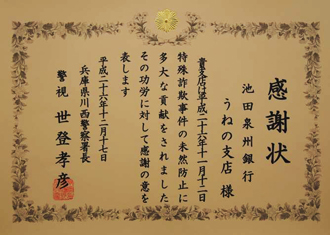 感謝状
池田泉州銀行
うねの支店 様
貴支店は平成二十六年十一月十二日
特殊詐欺事件の未然防止に
多大な貢献をされました
その功労に対して感謝の意を
表します
平成二十六年十二月十七日
兵庫県川西警察署長
警視 世登孝彦